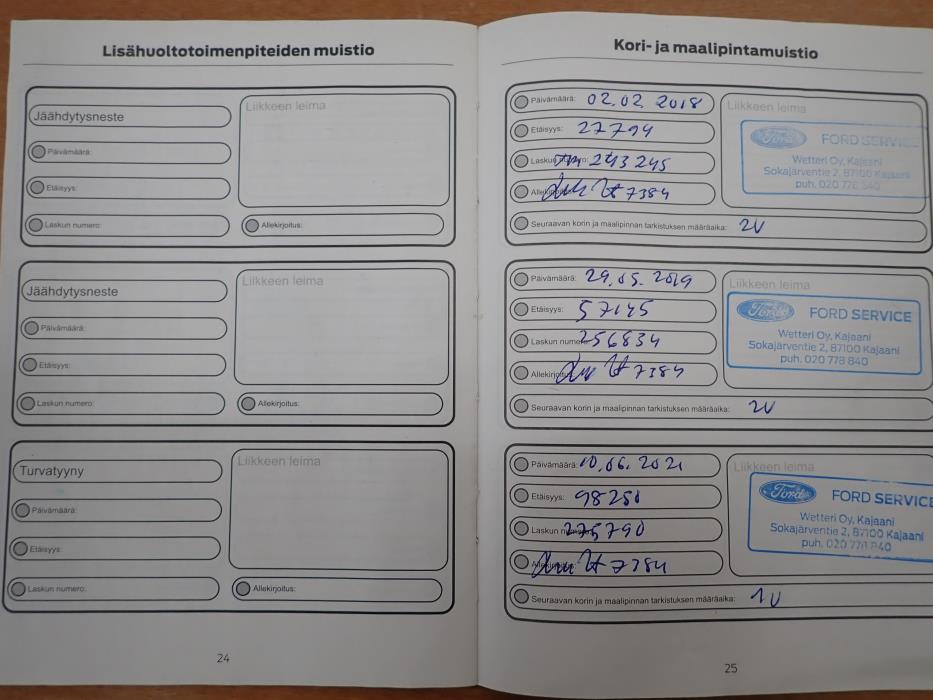 Lisähuoltotoimenpiteiden muistio
Jäähdytysneste
Liikkeen leima
Päivämäärä:
Etäisyys:
Laskun numero:
Allekirjoitus:
Jäähdytysneste
Liikkeen leima
Päivämäärä:
Etäisyys:
Laskun numero:
Allekirjoitus:
Turvatyyny
Liikkeen leima
Päivämäärä:
Etäisyys:
Laskun numero:
Allekirjoitus:
24
Kori- ja maalipintamuistio
Päivämäärä: 02.02.2018
Etäisyys: 27794
Laskun numero: 243245
7384
Liikkeen leima
Ford FORD SERVICE
Wetteri Oy, Kajaani
Sokajärventie 2, 87100 Kajaani
puh. 020 778 840
Seuraavan korin ja maalipinnan tarkistuksen määräaika: 2V
Päivämäärä: 29.05.2019
Etäisyys: 57145
Laskun numero: 256834
Allekirjoitus: 7384
Liikkeen leima
Ford FORD SERVICE
Wetteri Oy, Kajaani
Sokajärventie 2, 87100 Kajaani
puh. 020 778 840
Seuraavan korin ja maalipinnan tarkistuksen määräaika: 2V
Päivämäärä: 10.06.2021
Etäisyys: 98250
Laskun numero: 275790
7384
Liikkeen leima
Ford FORD SERVICE
Wetteri Oy, Kajaani
Sokajärventie 2, 87100 Kajaani
puh. 020 778 840
Seuraavan korin ja maalipinnan tarkistuksen määräaika: 1V
25